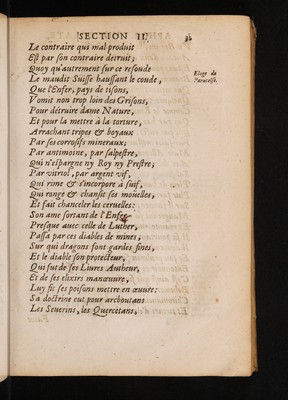 SECTION II.
Le contraire qui mal produit
Est par son contraire detruit;
Quoy qu'autrement sur ce resoude
Le maudit Suisse haussant le coude,
Eloge de
Paracelse.
Que l'Enfer, pays de tisons,
Vomit non trop loin des Grisons,
Pour détruire dame Nature,
Et pour la mettre à la torture,
Arrachant tripes & boyaux
Par ses corrosifs mineraux;
Par antimoine, par salpestre,
Qui n'espargne ny Roy ny Prestre;
Par vitriol, par argent vif,
Qui rime & s'incorpore à suif,
Qui ronge & chansit ses moüelles,
Et fait chanceler les ceruelles:
Son ame sortant de l'Enfer
Presque auec celle de Luther,
Passa par ces diables de mines;
Sur qui dragons font gardes fines,
Et le diable son protecteur,
Qui fut de ses Liures Autheur,
Et de ses elixirs manœuure,
Luy fit ses poisons mettre en œuure:
Sa doctrine eut pour arcboutans
Les Seuerins, les Quercetans,